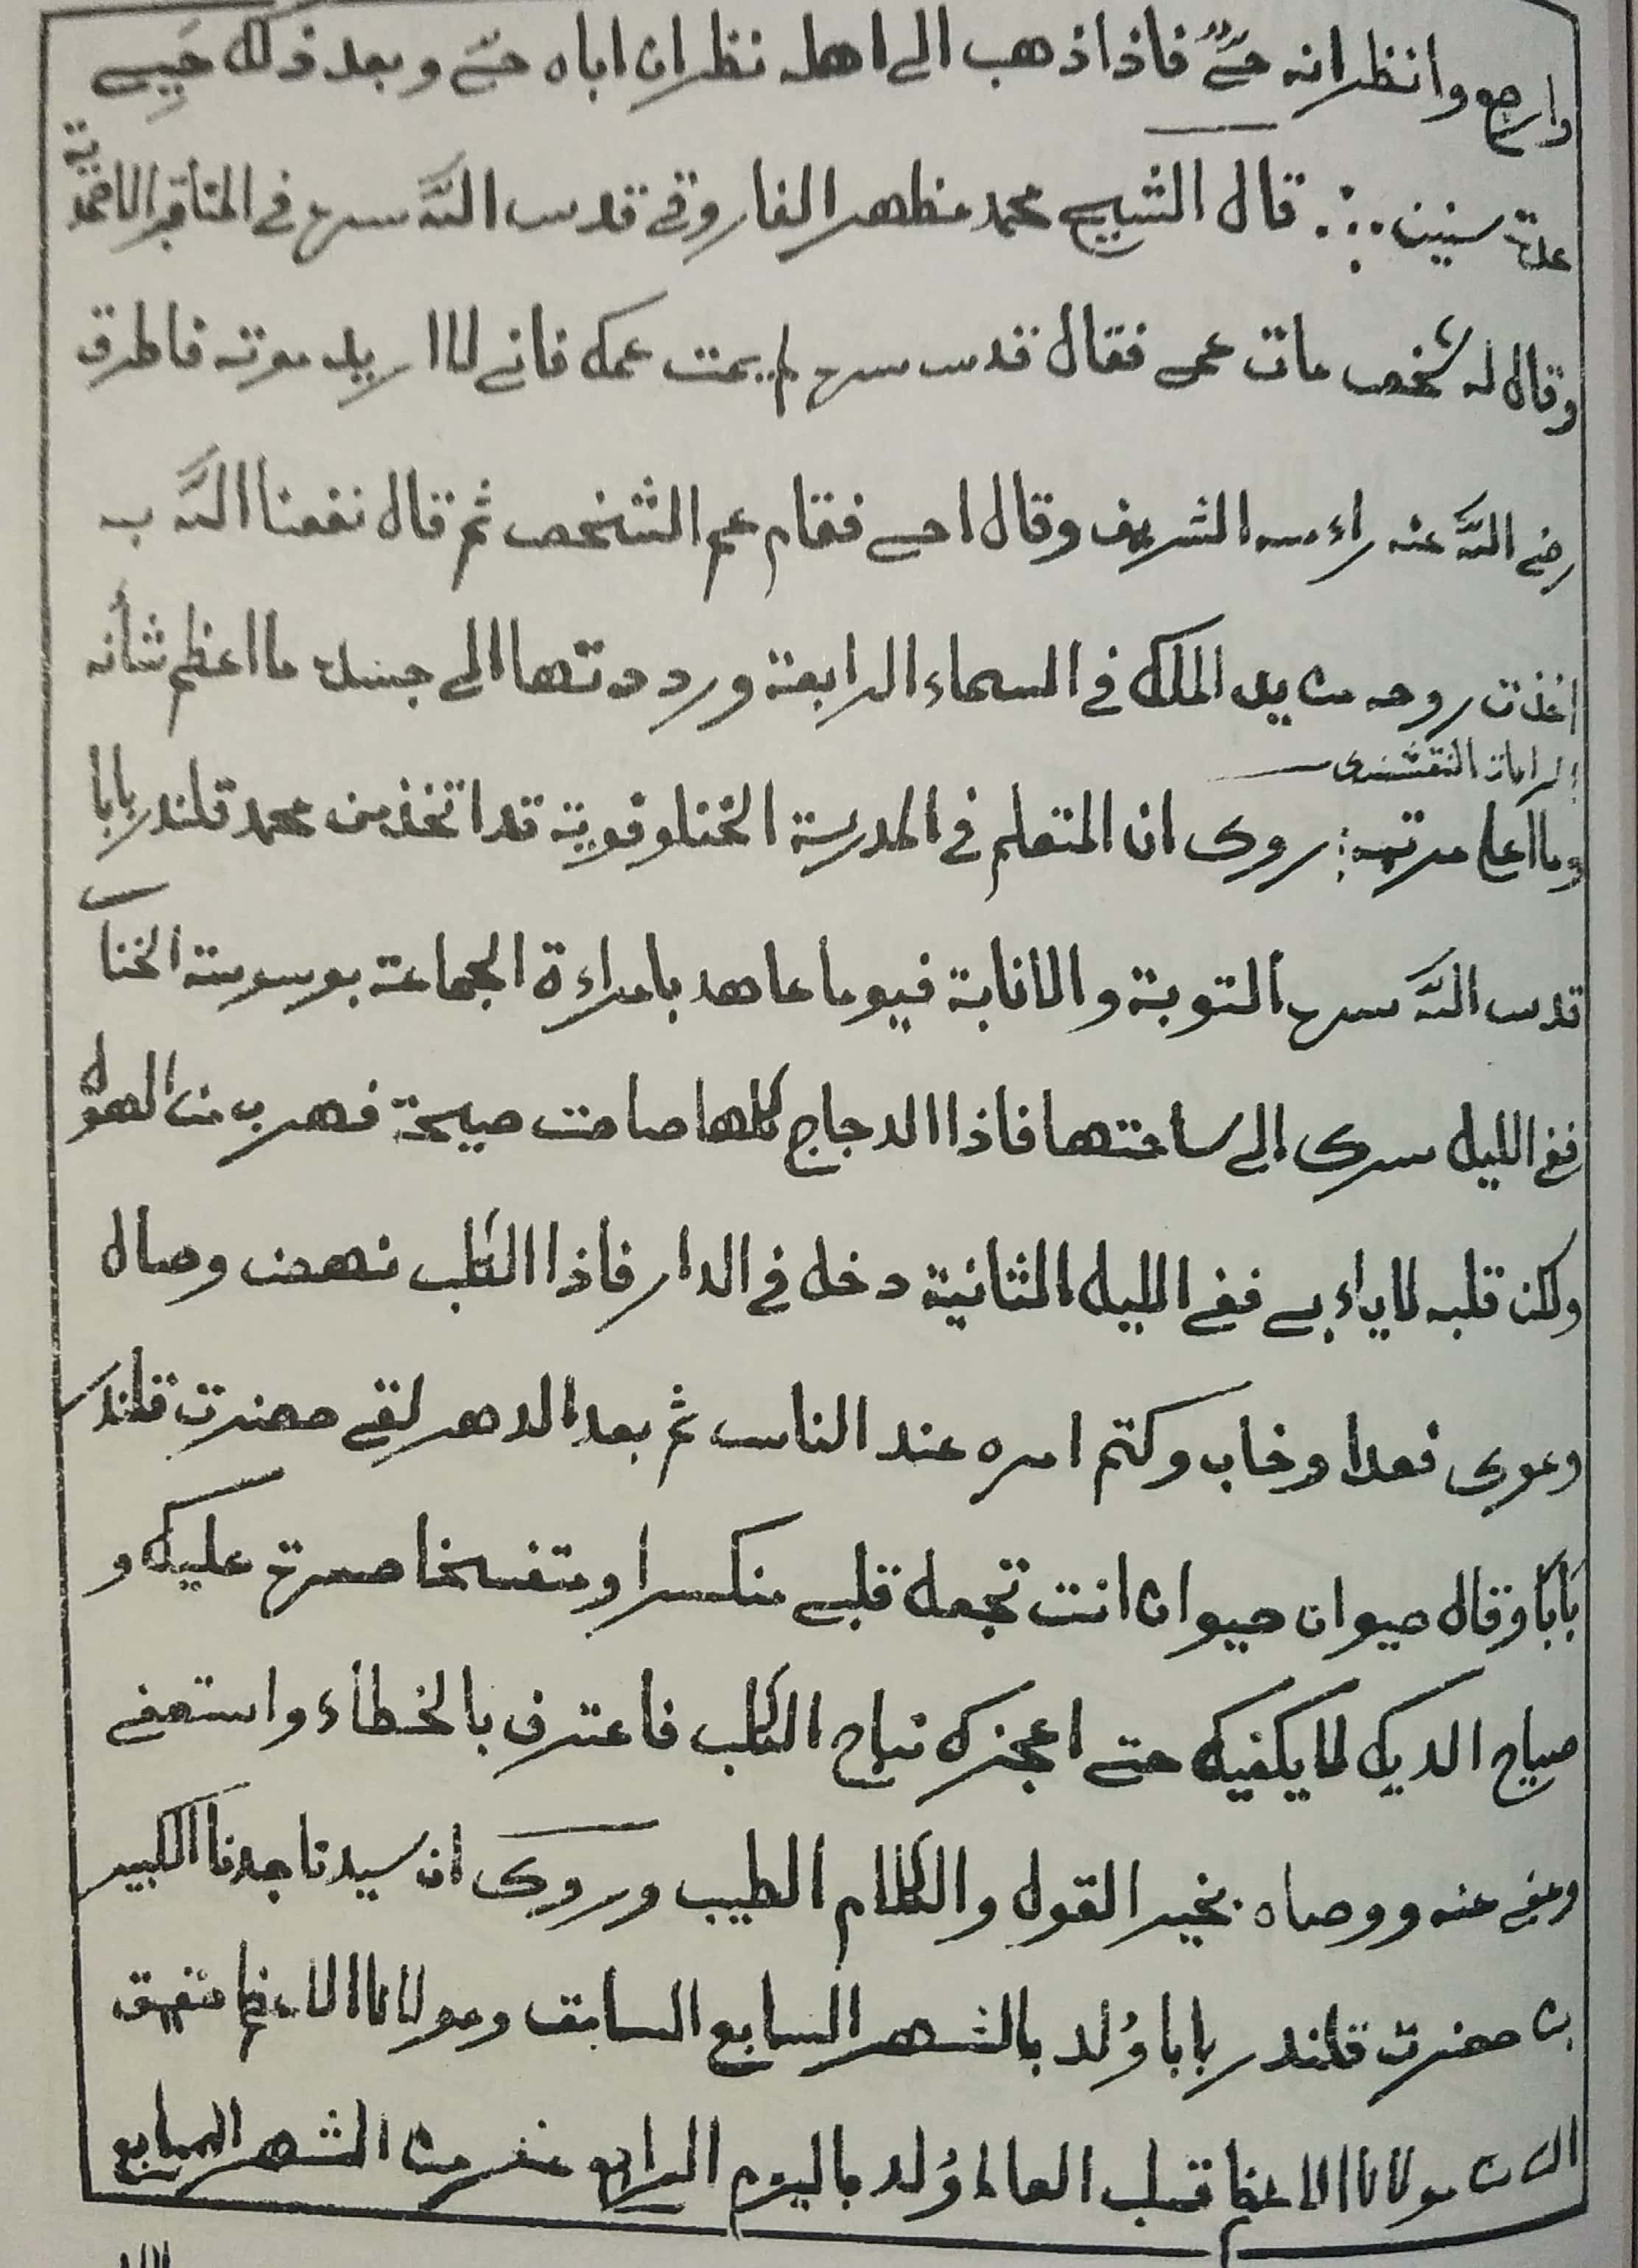 وارجع وانظر انه حيٌّ فاذا ذهب الى اهله نظر ان اباه حيّ وبعد ذلك حَيِيَ
عدة سنين ∴ قال الشيخ محمد مظهر الفاروقي قدس اللّه سره في المناقب الاحمدية
وقال له شخص مات عمي فقال قدس سره لم يمت عمك فاني لا اريد موته فاطرق
رضي اللّه عنه راءسه الشريف وقال احي فقام عم الشخص ثم قال نفعنا اللّه به
اخذت روحه من يد الملك في السماء الرابعة ورددتها الى جسده ما اعظم شأنه
كرامات النقشبندى
وما اعلى مرتبته روى ان المتعلم في المدرسة الخنلوقوية قد اتخذ من محمد قلندر بابا
قدس اللّه سره التوبة والانابة فيوما عاهد بامراءة الجماعة بوسوسة الخنا
ففي الليل سرى الى ساحتها فاذا الدجاج كلها صاحت صيحة فهرب من الهول
ولكن قلبه لا ياءبى ففي الليل الثانية دخل في الدار فاذا الكلب نهض وصال
وعوى فعدا وخاب وكتم امره عند الناس ثم بعد الدهر لقي حضرت قلندر
بابا وقال حيوان حيوان انت تجعل قلبي منكسرا ومتفسخا صرخ عليك و
صياح الديك لا يكفيك حتى اعجزك نباح الكلب فاعترف بالخطاء واستعفى
وعفى عنه ووصاه بخير القول والكلام الطيب وروى ان سيدنا جدنا الكبير
بن حضرت قلندر بابا وُلد بالشهر السابع السابق ومولانا الاعظم متفق
مولانا الاعظم قبل العام وُلد باليوم الرابع عشر من الشهر السابع